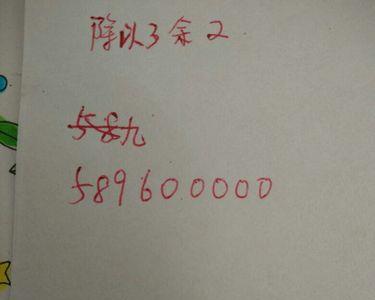 除以3余2
589九
589600000